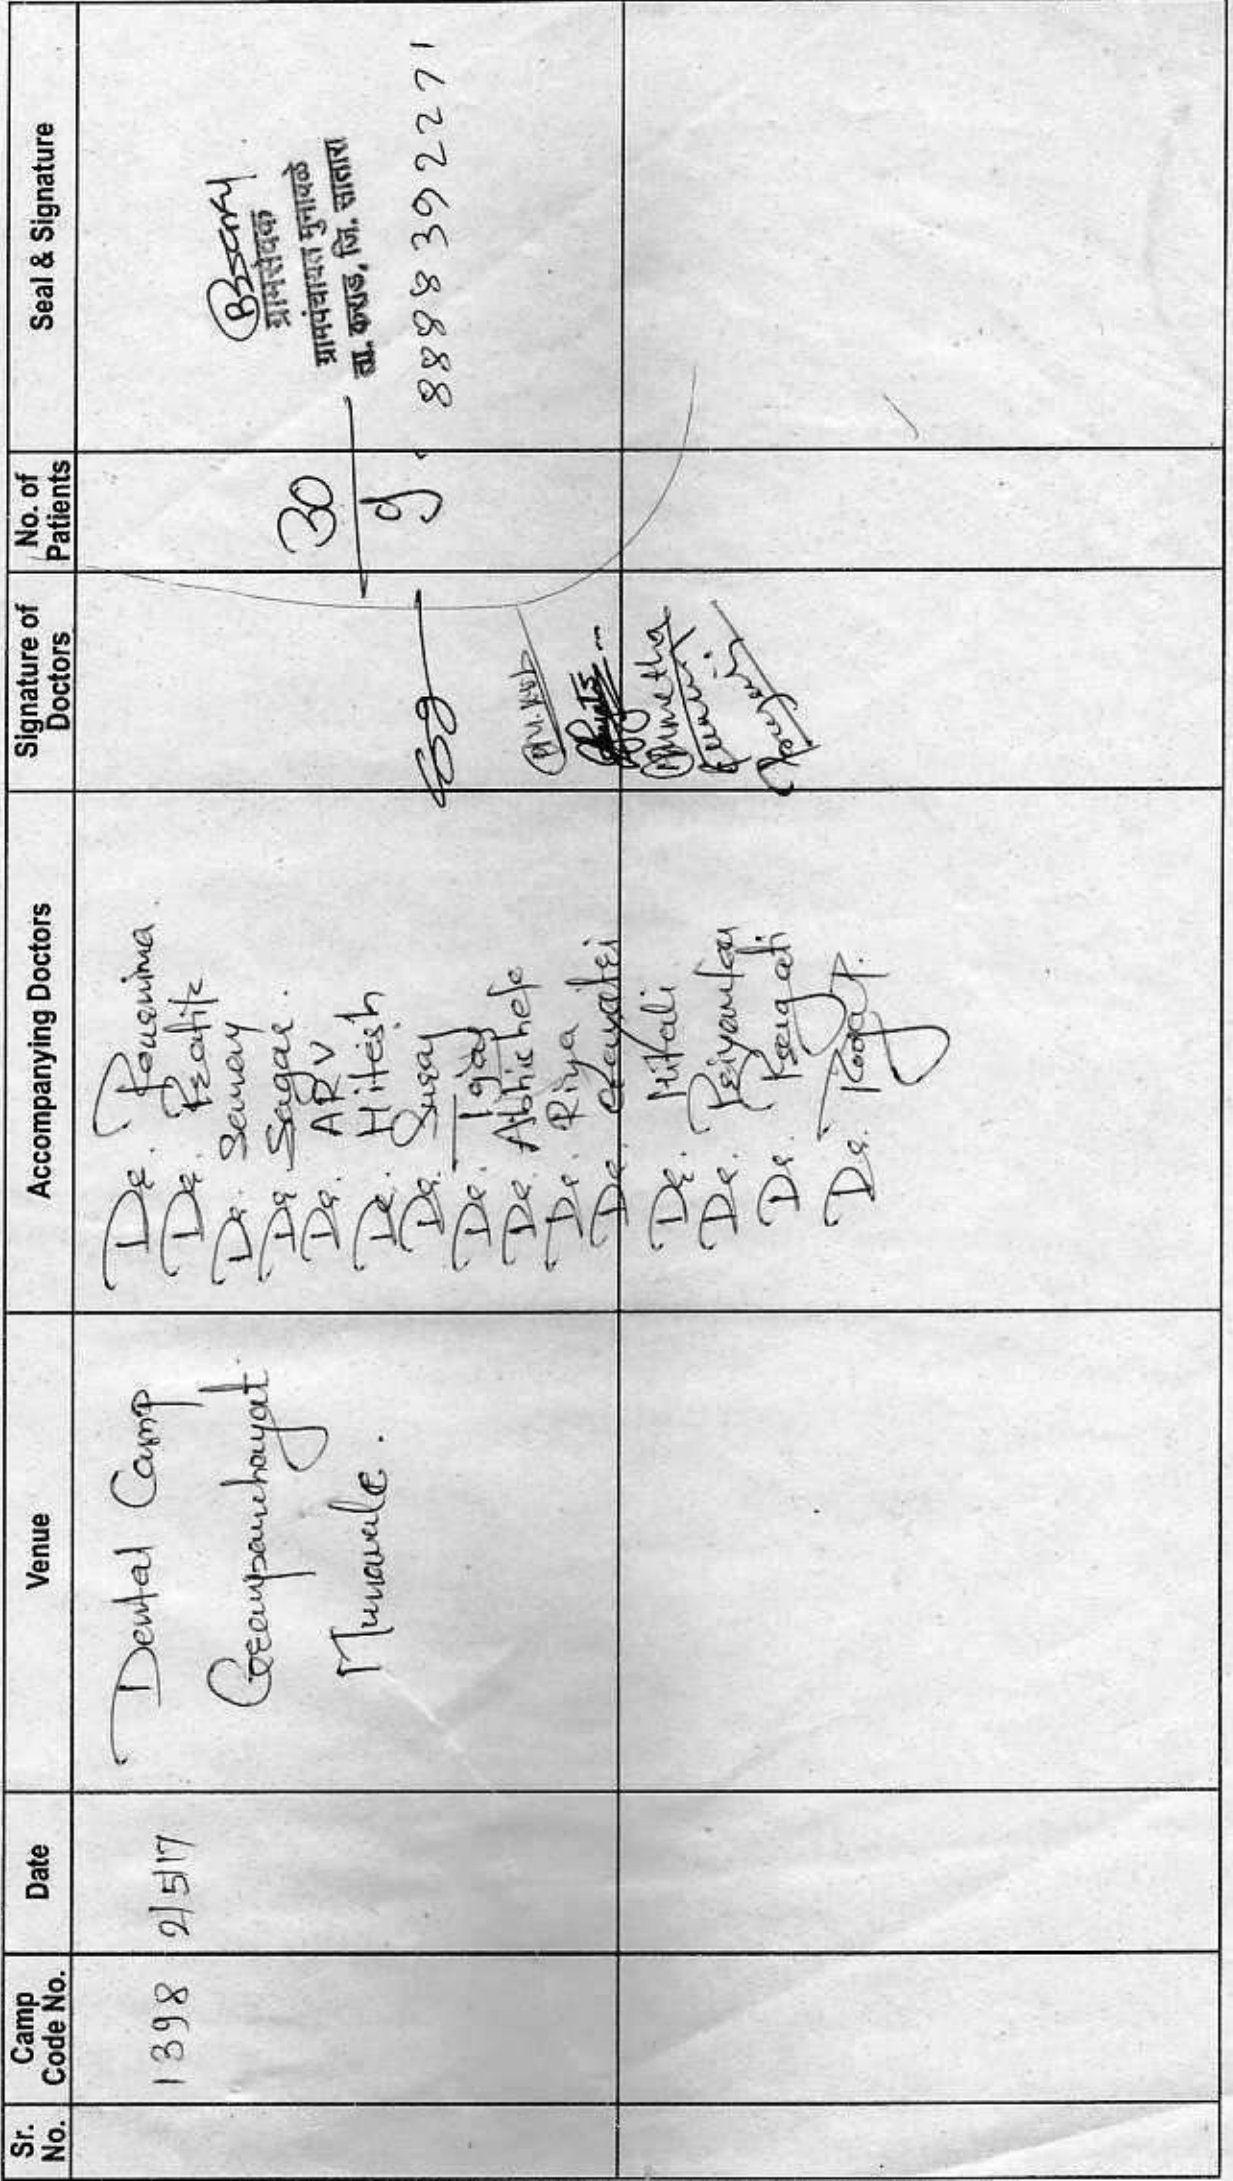 Sr. No.
Camp Code No.
Date
Venue
Accompanying Doctors
Signature of Doctors
No. of Patients
Seal & Signature
1398
2/5/17
Dental Camp
Grampanchayat
Munavale.
Dr. Pournima
Dr. Pratik
Dr. Samay
Dr Sagar.
Dr. ARV
Dr. Hitesh
Dr. Suraj
Dr. Tejas
Dr. Abhishek
Dr. Riya
Dr.
Dr. Mitali
Dr. Priyanka
Dr. Pragati
Dr. Pooja P.
30
ग्रामसेवक
ग्रामपंचायत मुनावळे
ता. कराड, जि. सातारा
8888392271